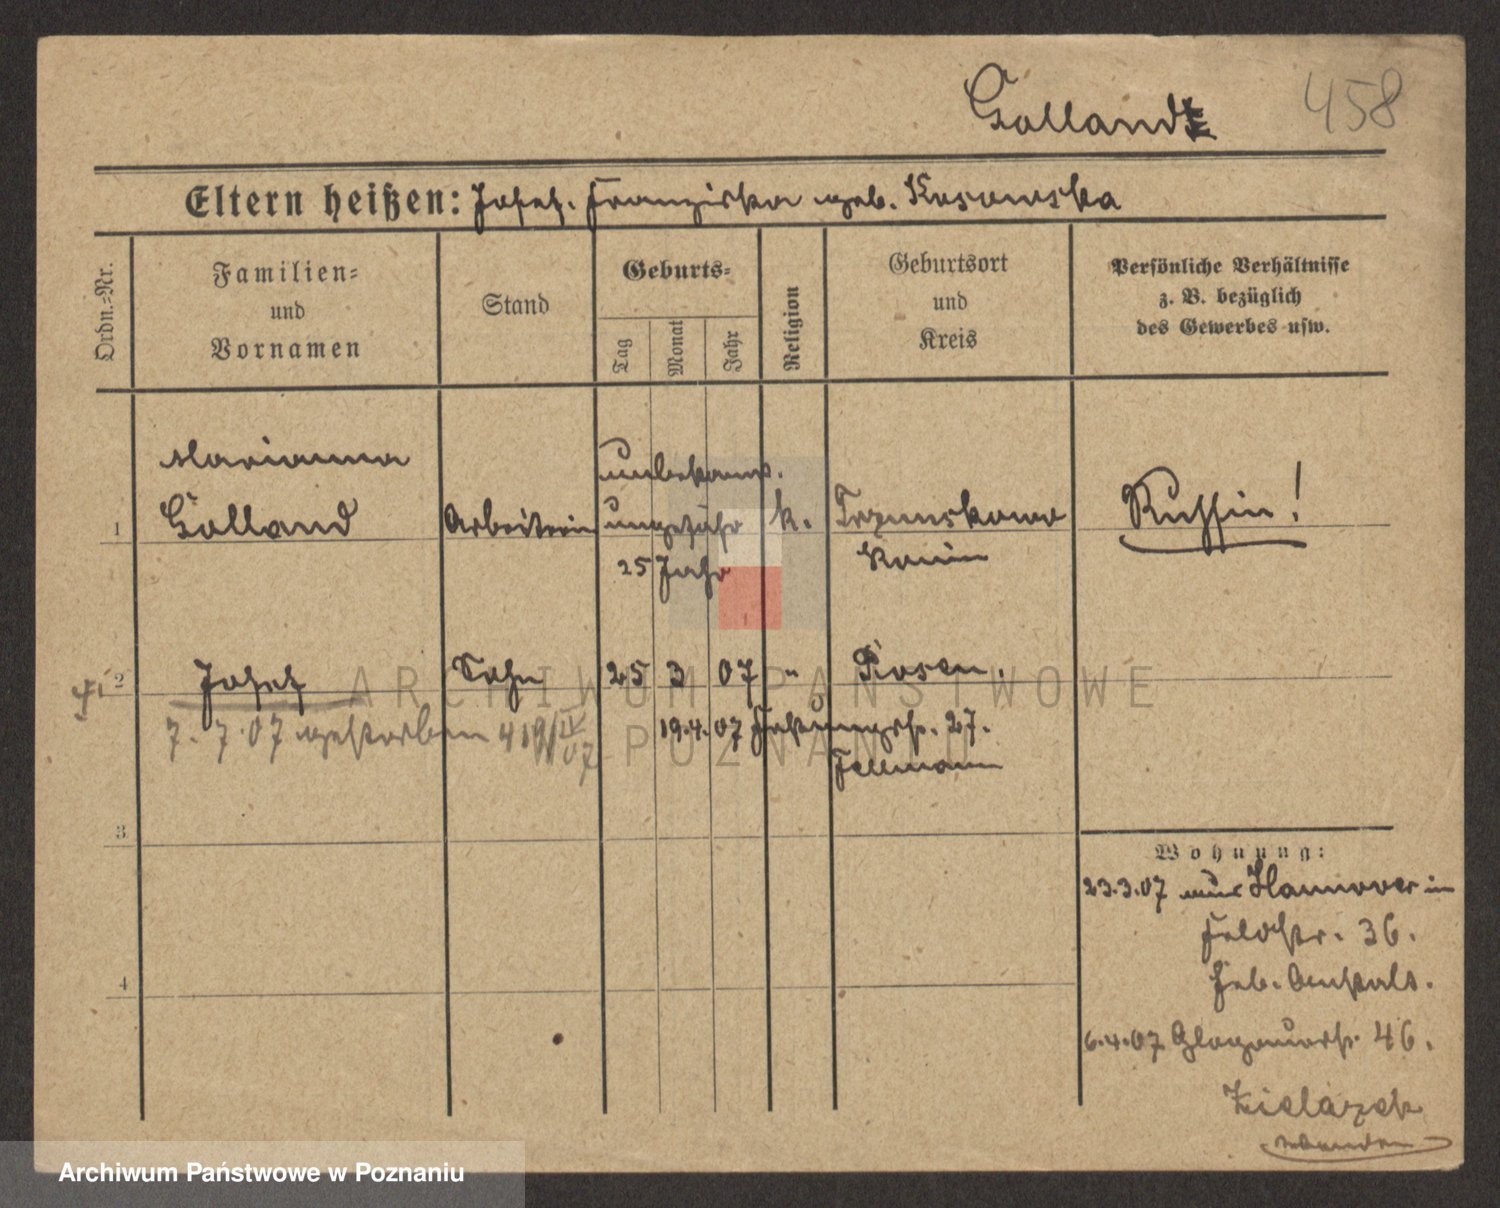 Golland
458
Eltern heißen: Josef. Franziska geb. Kosowska
Ordn.-Nr.
Familien- und Vornamen
Stand
Geburts-
Tag
Monat
Jahr
Religion
Geburtsort und Kreis
Persönliche Verhältnisse z. B. bezüglich des Gewerbes usw.
Marianna
unbekannt.
1 Golland Arbeiterin ungefähr k. Russin!
25 Jahr Konin
2 Josef Sohn 25 3 07 " Posen.
7. 7. 07 gestorben 419/IV 07 19.4.07 Festungsstr. 27.
Fellmann
3
Wohnung:
23.3.07 aus Hannover in
Feldstr. 36.
Heb. Anstalt.
4
6.4.07 Glogauerstr. 46.
Zielazek
ARCHIWUM PAŃSTWOWE
W POZNANIU
Archiwum Państwowe w Poznaniu